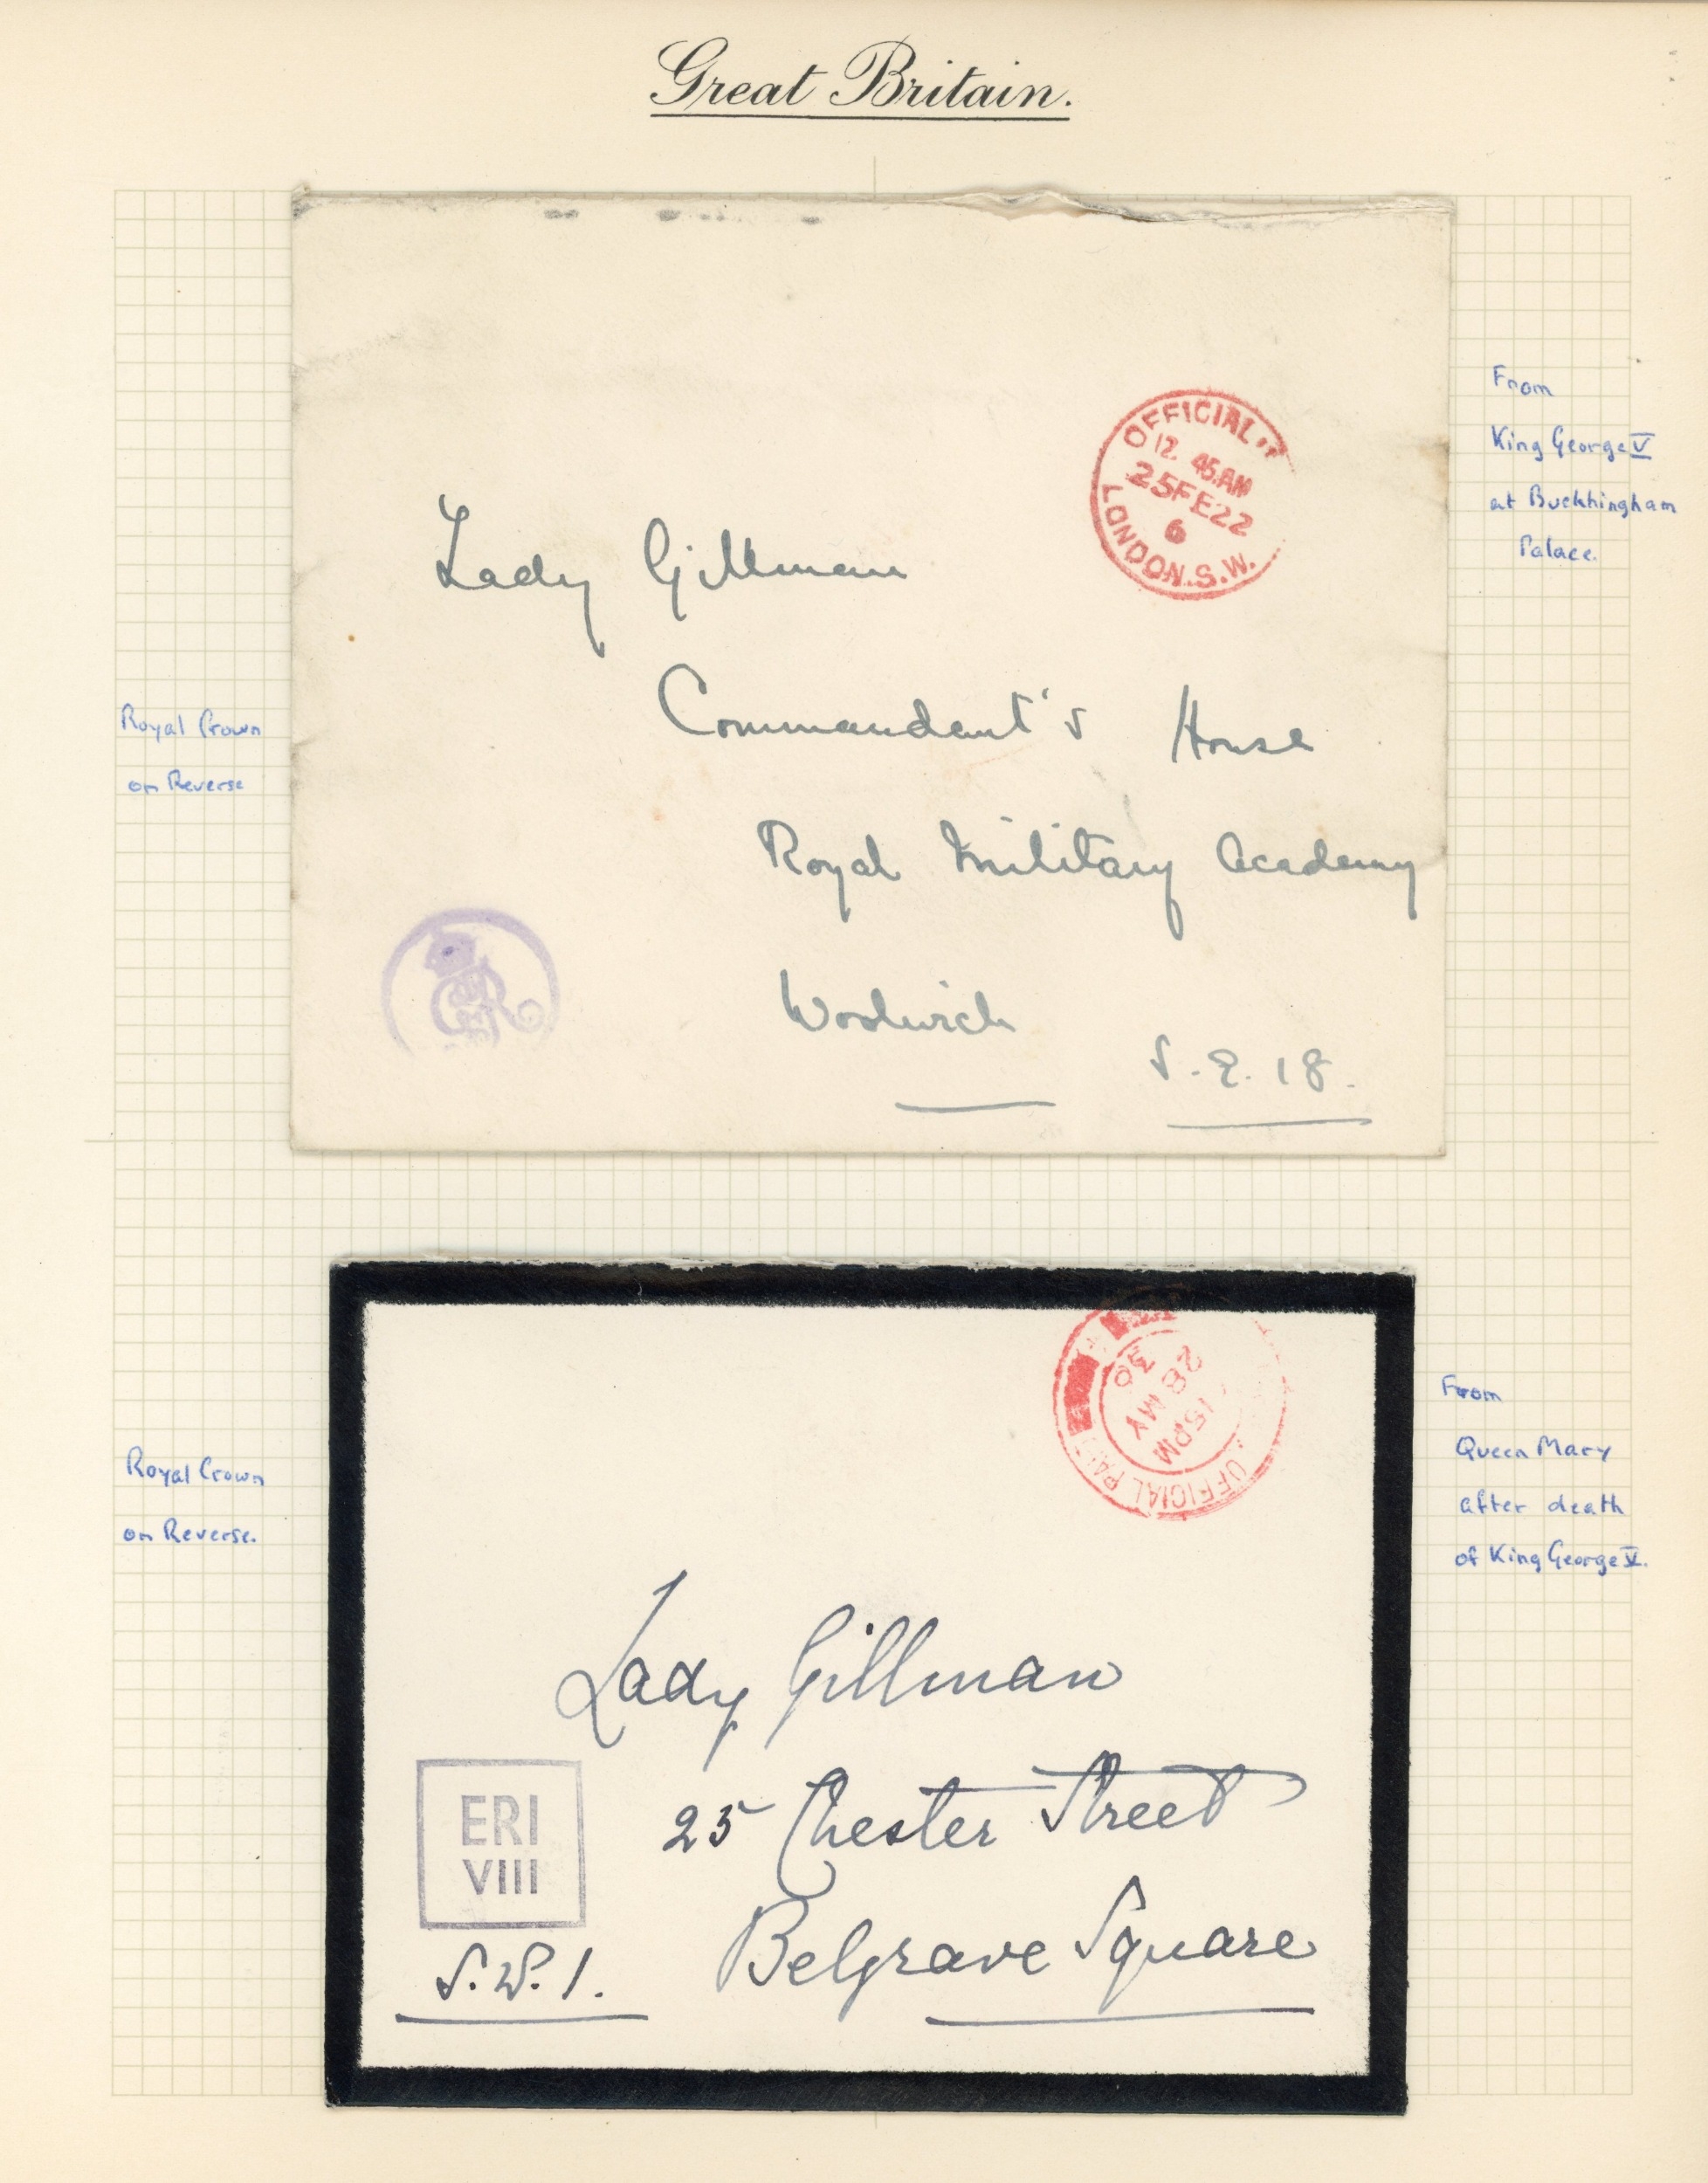 Great Britain.
OFFICIAL
12. 45.AM
25FE22
6
LONDON.S.W.
From
King George V
at Buckhingham
Palace.
Lady Gillman
Commandant's House
Royal Military Academy
Woolwich
S.E.18.
Royal Crown
on Reverse
OFFICIAL
15PM
28 MY
36
From
Queen Mary
after death
of King George V.
Royal Crown
on Reverse.
Lady Gillman
25 Chester Street
Belgrave Square
ERI
VIII
S.W.1.